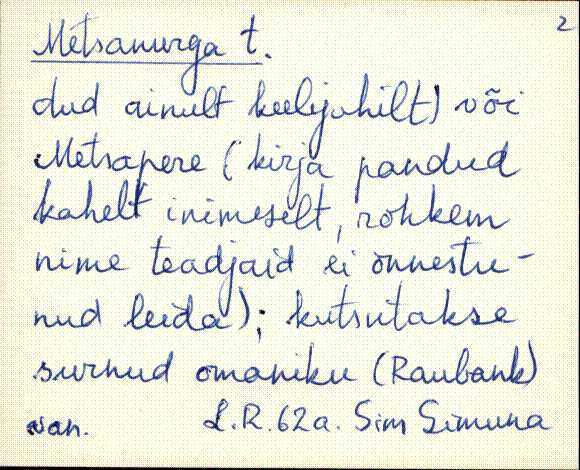 2
Metsanurga t.
dud ainult keelejuhilt) või
Metsapere (kirja pandud
kahelt inimeselt, rohkem
nime teadjaid ei õnnestu-
nud leida); kutsutakse
surnud omaniku (Raubank)
van. L.R.62a. Sim Simuna